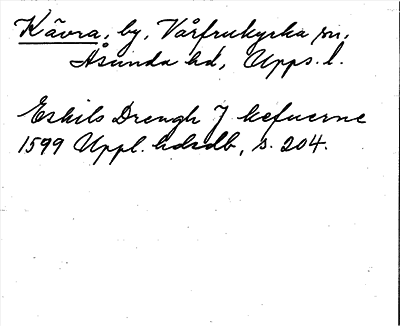 Kävra, by, Vårfrukyrka sn,
Åsunda hd, Upps. l.
Eskils Drengh J kefuerne
1599 Uppl. hdsdb, s. 204.